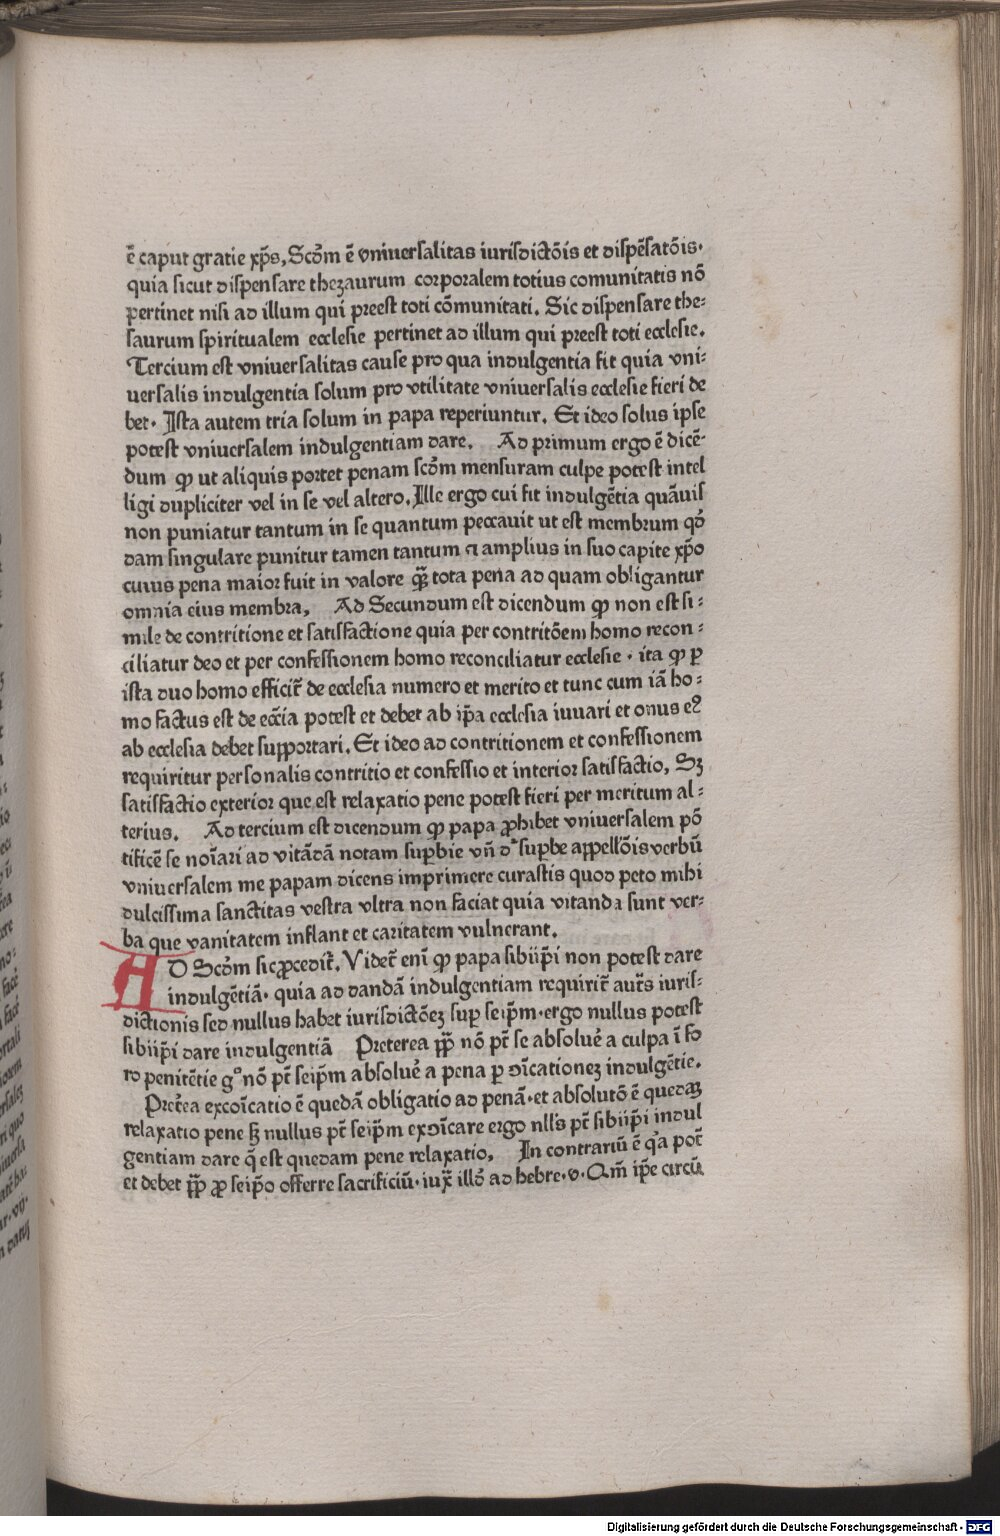 ē caput gratie xp̄s, Scd̄m ē vniuersalitas iurisdictōis et dispēsatōis·
quia sicut dispensare thezaurum corporalem totius comunitatis nō
pertinet nisi ad illum qui preest toti cōmunitati. Sic dispensare the:
saurum spiritualem ecclesie pertinet ad illum qui preest toti ecclesie.
Tercium est vniuersalitas cause pro qua indulgentia fit quia vni:
uersalis indulgentia solum pro vtilitate vniuersalis ecclesie fieri de
bet· Ista autem tria solum in papa reperiuntur. Et ideo solus ipse
potest vniuersalem indulgentiam dare. Ad primum ergo ē dicē-
dum ꝙ ut aliquis portet penam scd̄m mensuram culpe potest intel
ligi dupliciter vel in se vel altero. Ille ergo cui fit indulgētia quāuis
non puniatur tantum in se quantum peccauit ut est membrum qd̄
dam singulare punitur tamen tantum ⁊ amplius in suo capite xp̄o
cuius pena maior fuit in valore q̄ꝫ tota pena ad quam obligantur
omnia eius membra, Ad Secundum est dicendum ꝙ non est si:
mile de contritione et satisfactione quia per contritōem homo recon:
ciliatur deo et per confessionem homo reconciliatur ecclesie · ita ꝙ ꝑ
ista duo homo efficit̄ de ecclesia numero et merito et tunc cum iā ho:
mo factus est de ecc̄ia potest et debet ab ip̄a ecclesia iuuari et onus eꝰ
ab ecclesia debet supportari. Et ideo ad contritionem et confessionem
requiritur personalis contritio et confessio et interior satisfactio, Sꝫ
satisfactio exterior que est relaxatio pene potest fieri per meritum al:
terius. Ad tercium est dicendum ꝙ papa ꝓhibet vniuersalem pō
tificē se noīari ad vitādā notam supbie vn̄ dᵒ supbe appellōis verbū
vniuersalem me papam dicens imprimere curastis quod peto mihi
dulcissima sanctitas vestra vltra non faciat quia vitanda sunt ver:
ba que vanitatem inflant et caritatem vulnerant.
AD Scd̄m sic ꝓcedit̄. Videt̄ enī ꝙ papa sibiip̄i non potest dare
indulgētiā· quia ad dandā indulgentiam requirit̄ aut̄s iuris:
dictionis sed nullus habet iurisdictōeꝫ sup seip̄m·ergo nullus potest
sibiip̄i dare indulgentiā Preterea pp̄ nō pt̄ se absolue᷑ a culpa ī fo
ro penitētie gᵒ nō pt̄ seip̄m absolue᷑ a pena ꝑ ꝺīcationeꝫ indulgētie.
Pret̄ea excoīcatio ē quedā obligatio ad penā·et absolutō ē quedaꝫ
relaxatio pene sꝫ nullus pt̄ seip̄m exꝺīcare ergo nll̄s pt̄ sibiip̄i indul
gentiam dare q̄ est quedam pene relaxatio, In contrariū ē qᵃ pot̄
et debet pp̄ ꝓ seip̄o offerre sacrificiū·iux̄ illd̄ ad hebre·v·Qm̄ ip̄e circū
Digitalisierung gefördert durch die Deutsche Forschungsgemeinschaft - DFG